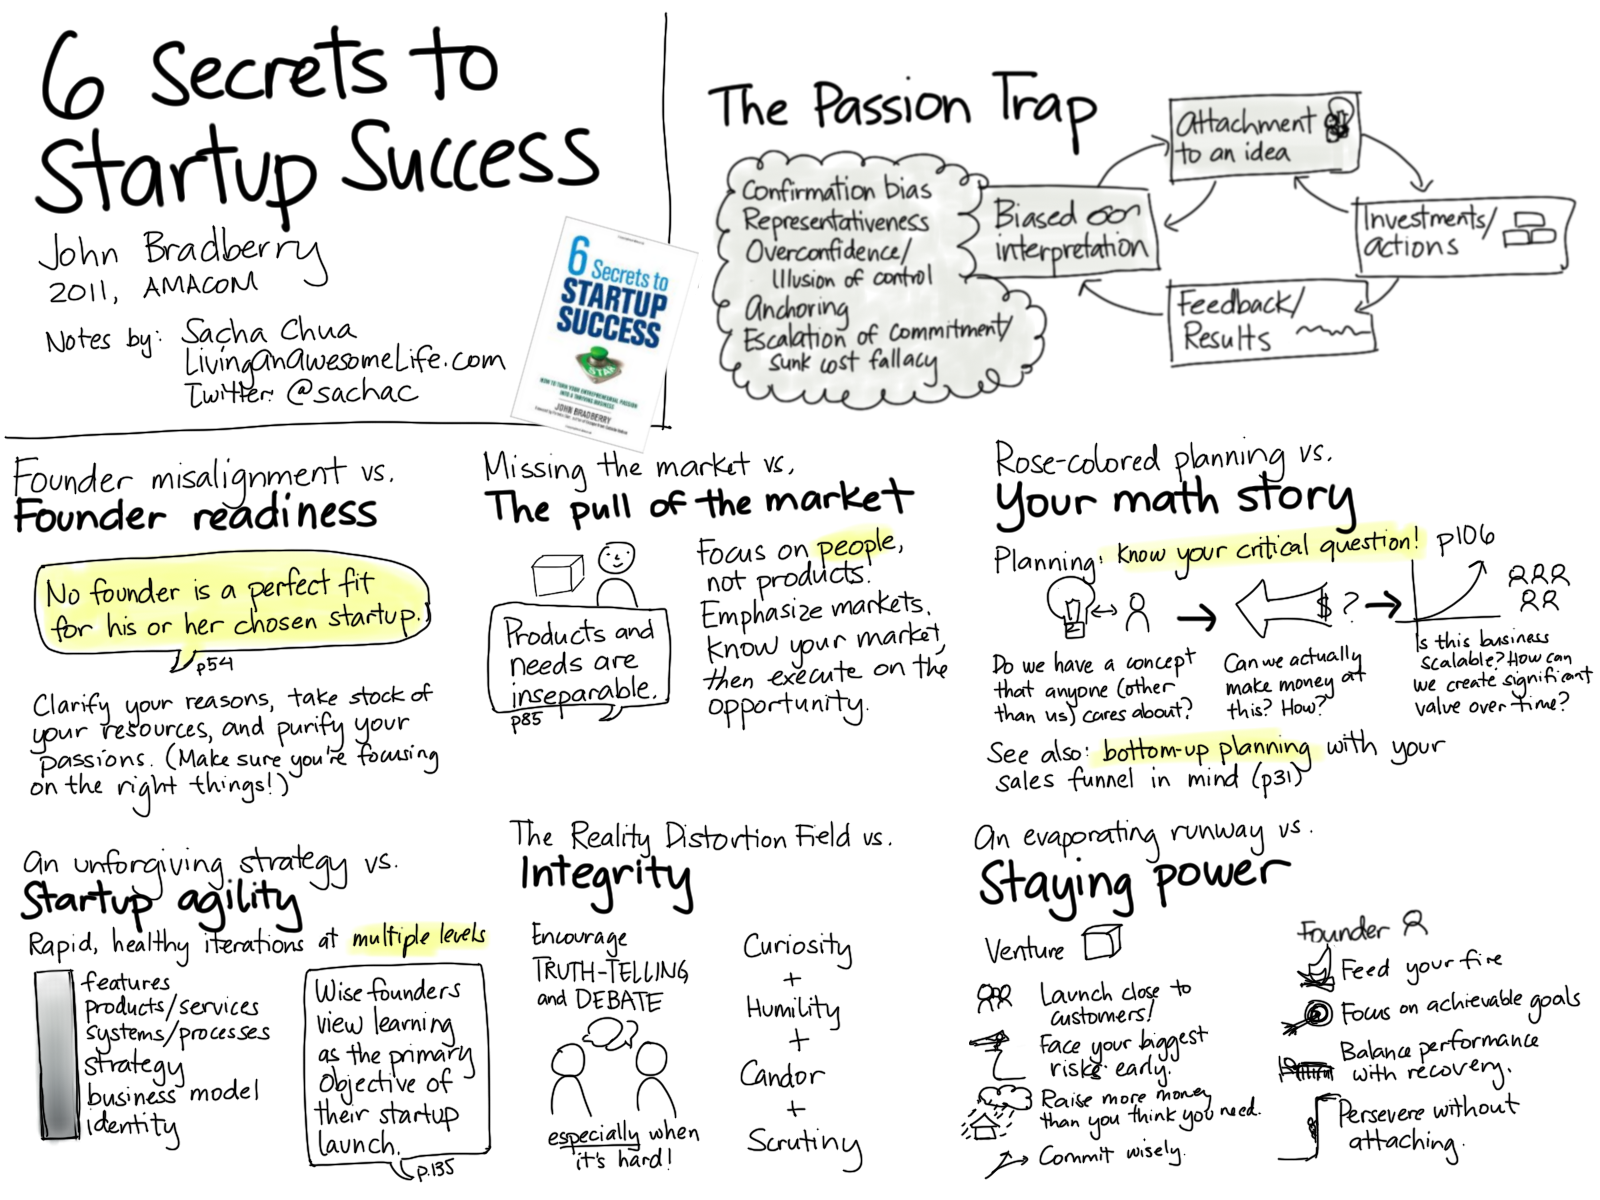 6 Secrets to
Startup Success
John Bradberry
2011, AMACOM
Notes by: Sacha Chua
LivingAnAwesomeLife.com
Twitter: @sachac
6 Secrets to
STARTUP
SUCCESS
START
HOW TO TURN YOUR ENTREPRENEURIAL PASSION
INTO A THRIVING BUSINESS
JOHN BRADBERRY
The Passion Trap
Attachment
to an idea
Investments/
actions
Feedback/
Results
Biased
interpretation
Confirmation bias
Representativeness
Overconfidence/
Illusion of control
Anchoring
Escalation of commitment/
sunk cost fallacy
Founder misalignment vs.
Founder readiness
No founder is a perfect fit
for his or her chosen startup.
p54
Clarify your reasons, take stock of
your resources, and purify your
passions. (Make sure you're focusing
on the right things!)
Missing the market vs.
The pull of the market
Products and
needs are
inseparable.
p85
Focus on people,
not products.
Emphasize markets.
Know your market,
then execute on the
opportunity.
Rose-colored planning vs.
Your math story
Planning: Know your critical question! p106
$ ?
Do we have a concept
that anyone (other
than us) cares about?
Can we actually
make money at
this? How?
Is this business
scalable? How can
we create significant
value over time?
See also: bottom-up planning with your
sales funnel in mind (p31)
An unforgiving strategy vs.
Startup agility
Rapid, healthy iterations at multiple levels
features
products/services
systems/processes
strategy
business model
identity
Wise founders
view learning
as the primary
objective of
their startup
launch.
p.135
The Reality Distortion Field vs.
Integrity
Encourage
TRUTH-TELLING
and DEBATE
especially when
it's hard!
Curiosity
+
Humility
+
Candor
+
Scrutiny
An evaporating runway vs.
Staying power
Venture
Launch close to
customers!
Face your biggest
risks early.
Raise more money
than you think you need.
Commit wisely.
Founder
Feed your fire
Focus on achievable goals
Balance performance
with recovery.
Persevere without
attaching.